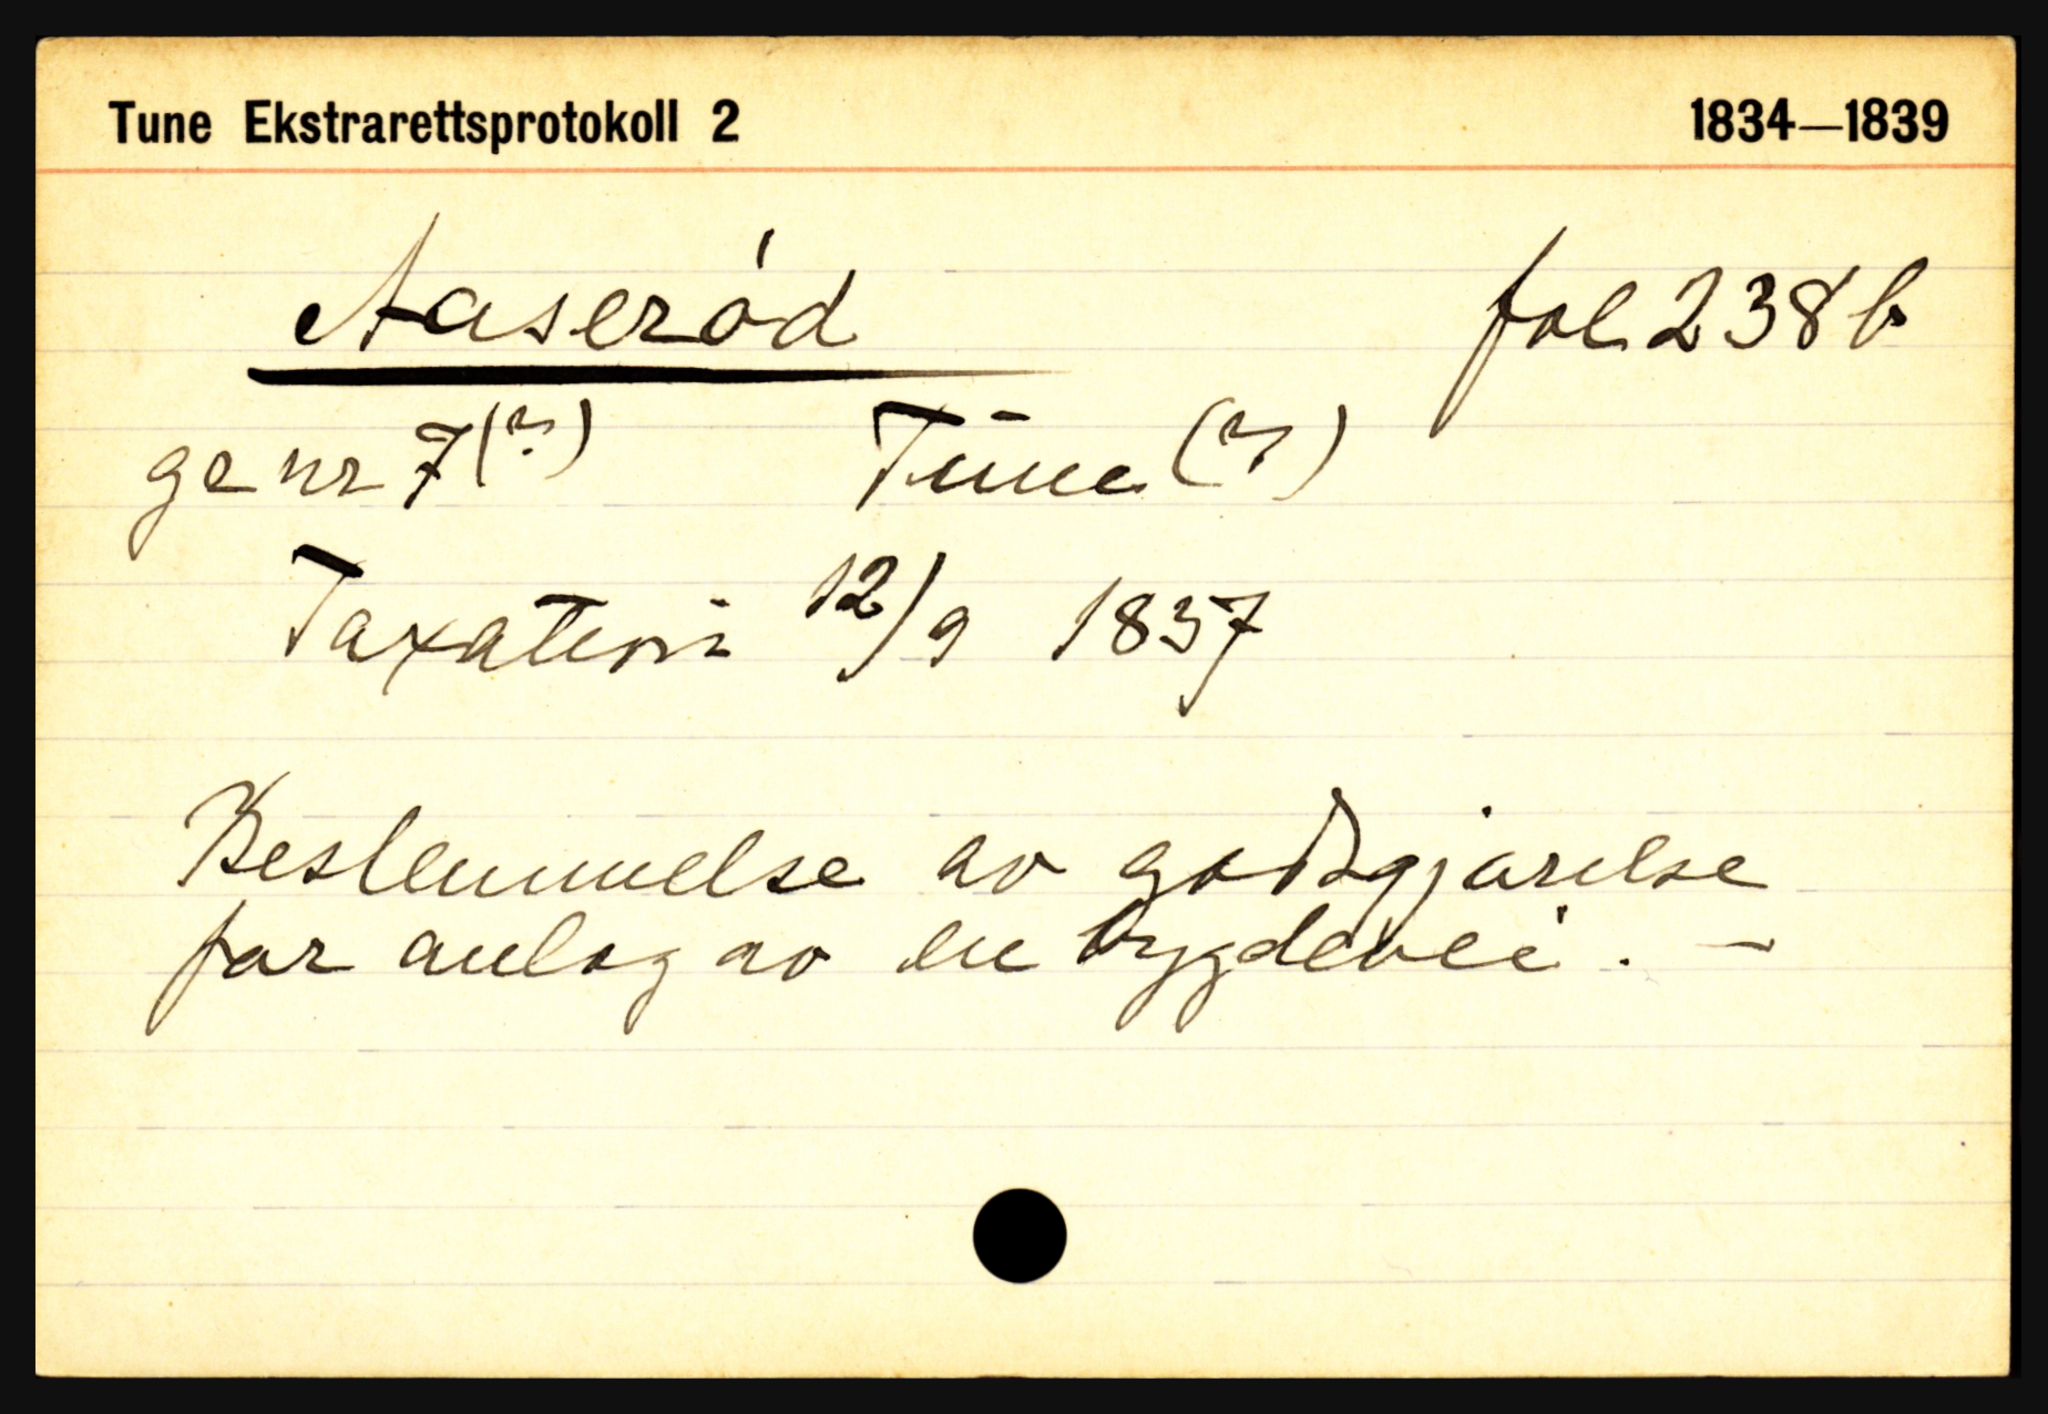 Tune Ekstrarettsprotokoll 2 1834—1839
Aaserød fol 238 b
gr nr 7(?) Tune (?)
Taxation 12/9 1837
Bestemmelse av godtgjørelse
for anlæg av en bygdevei. —